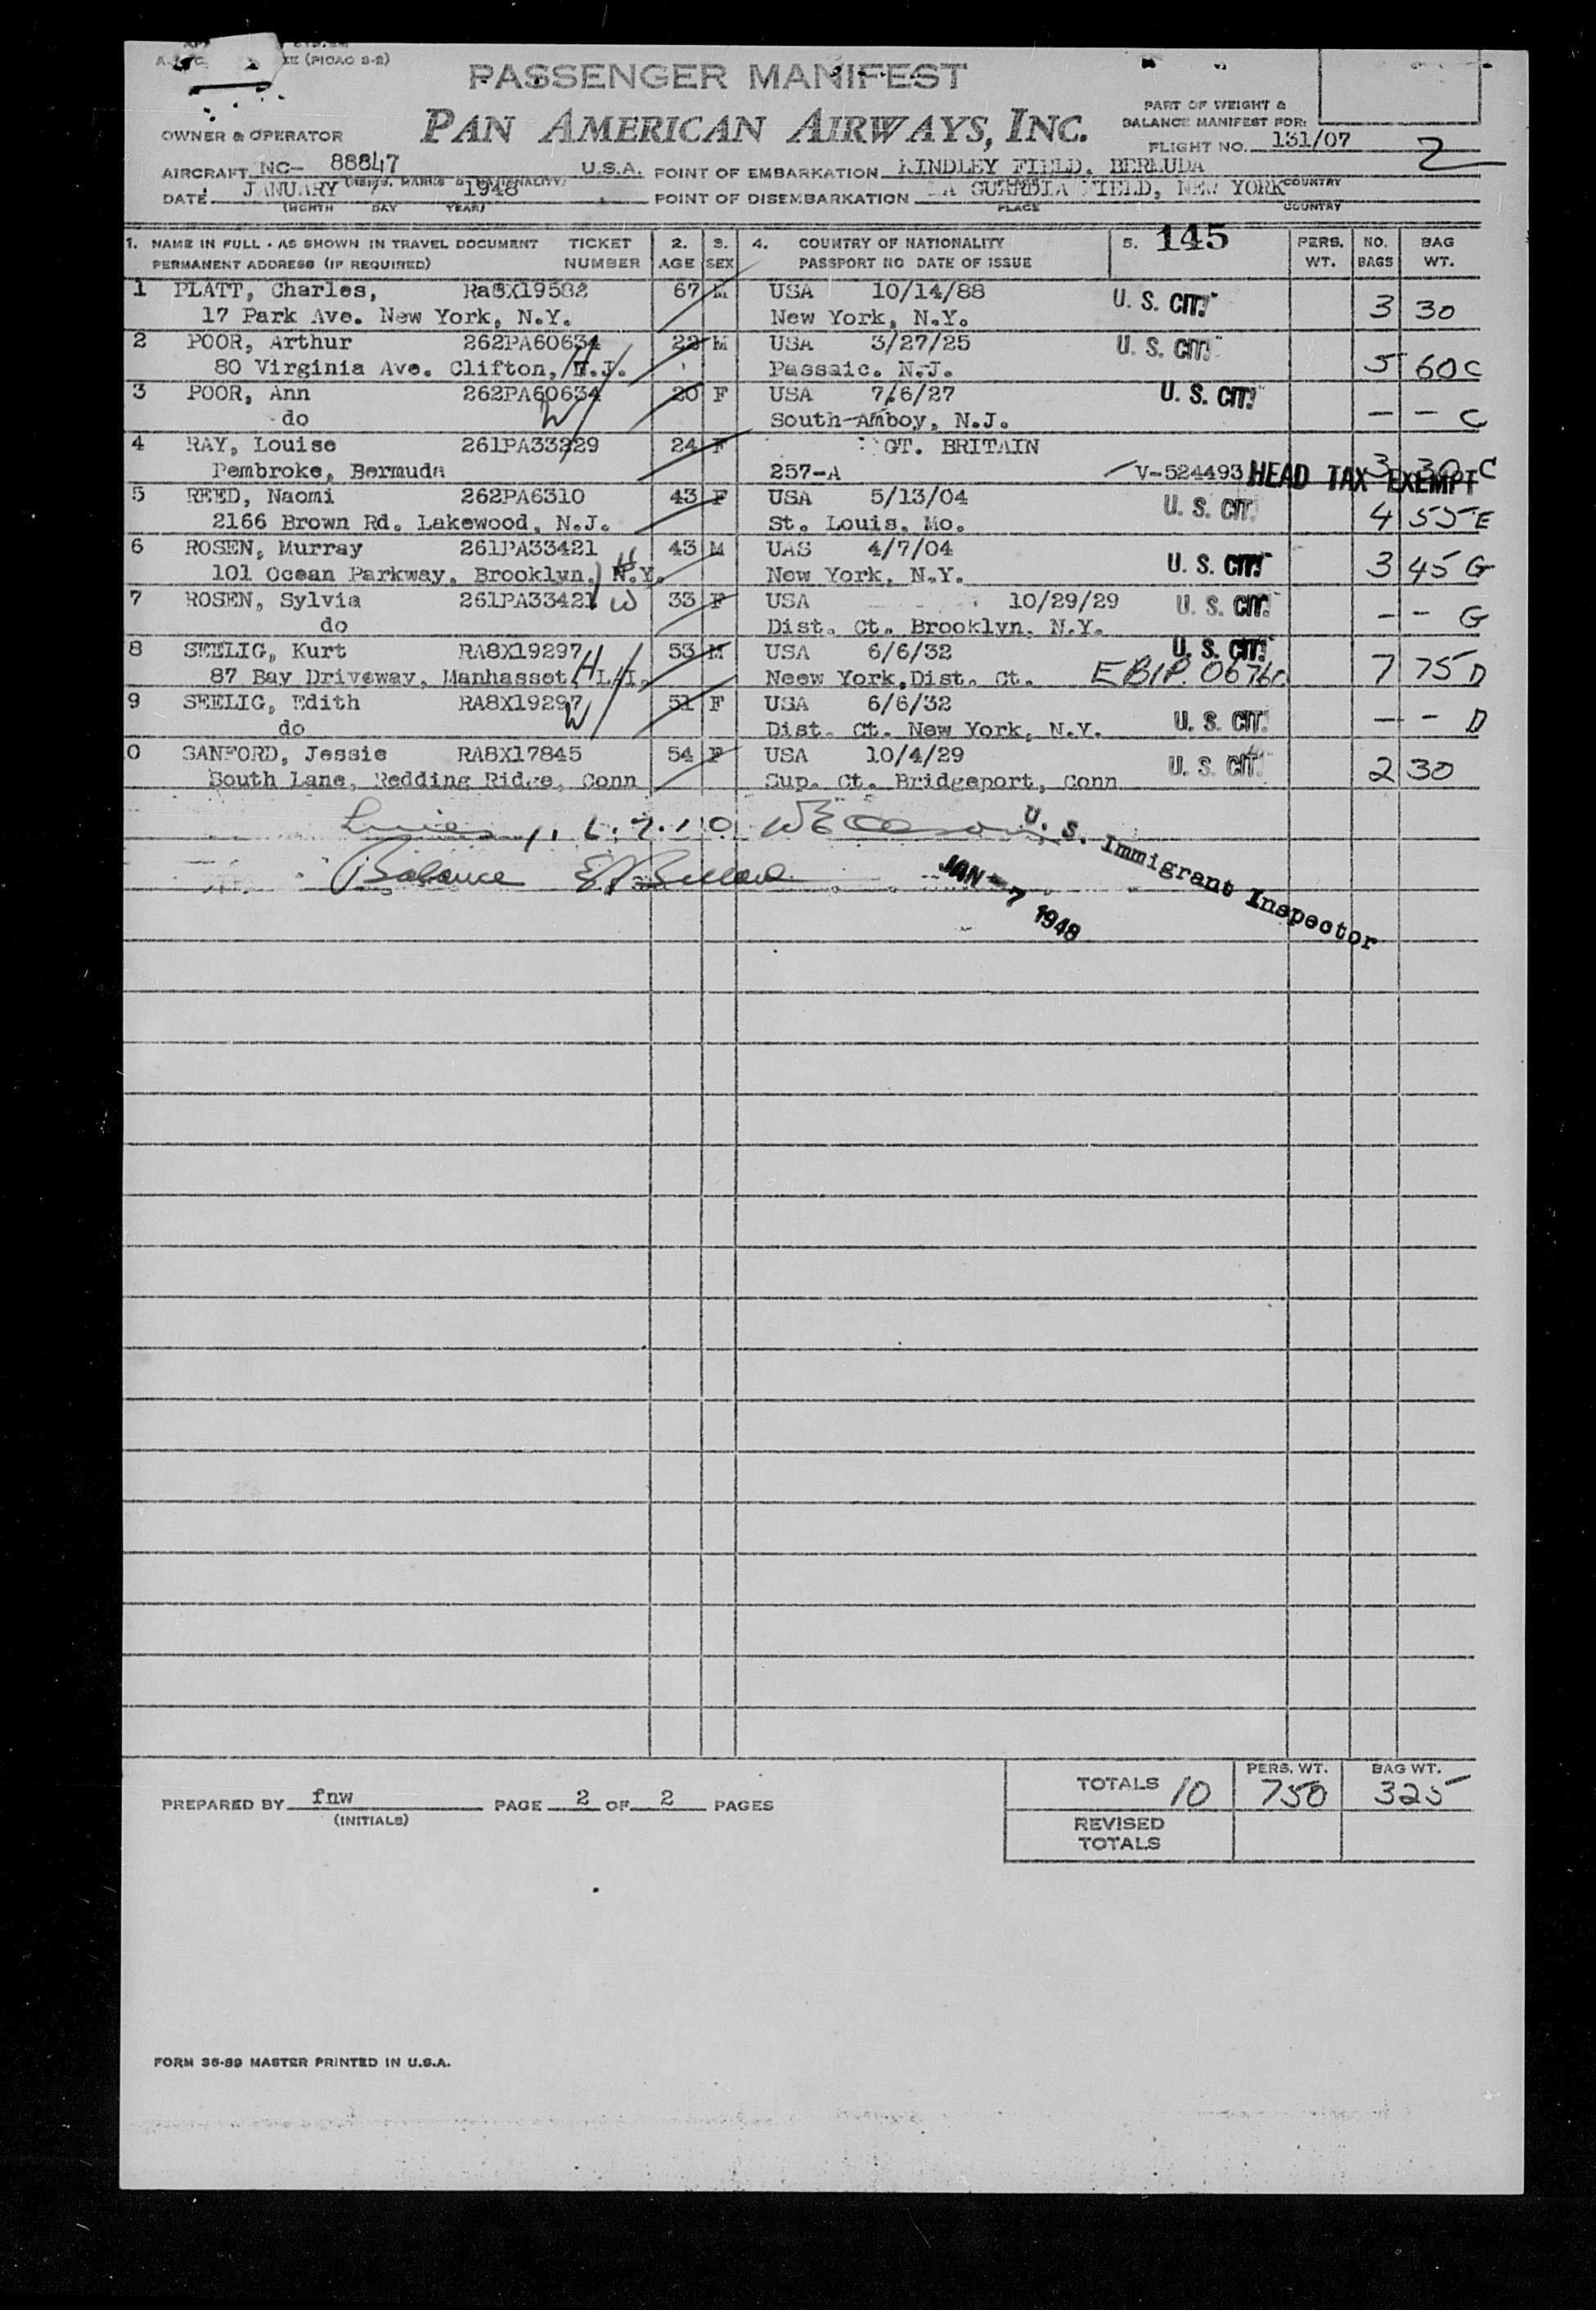 (PICAO 2-2)
PASSENGER MANIFEST
PAN AMERICAN AIRWAYS, INC.
PART OF WEIGHT &
BALANCE MANIFEST FOR:
OWNER & OPERATOR
FLIGHT NO. 131/07
2
AIRCRAFT NC- 88847 U.S.A. POINT OF EMBARKATION KINDLEY FIELD, BERMUDA
(REG. MARKS & NATIONALITY) COUNTRY
DATE JANUARY 7 1948 POINT OF DISEMBARKATION LA GUARDIA FIELD, NEW YORK
(MONTH DAY YEAR) PLACE COUNTRY
1. NAME IN FULL - AS SHOWN IN TRAVEL DOCUMENT TICKET 2. 3. 4. COUNTRY OF NATIONALITY 5. 145 PERS. NO. BAG
PERMANENT ADDRESS (IF REQUIRED) NUMBER AGE SEX PASSPORT NO DATE OF ISSUE WT. BAGS WT.
1 PLATT, Charles, Ra8X19582 67 M USA 10/14/88 U. S. CIT.
17 Park Ave. New York, N.Y. New York, N.Y. 3 30
2 POOR, Arthur 262PA60634 22 M USA 3/27/25 U. S. CIT.
80 Virginia Ave. Clifton, N.J. H Passaic. N.J. 5 60 C
3 POOR, Ann 262PA60634 20 F USA 7/6/27 U. S. CIT.
do W South Amboy, N.J. - - C
4 RAY, Louise 261PA33229 24 F GT. BRITAIN
Pembroke, Bermuda 257-A V-524493 HEAD TAX EXEMPT 3 30 C
5 REED, Naomi 262PA6310 43 F USA 5/13/04 U. S. CIT.
2166 Brown Rd. Lakewood, N.J. St. Louis, Mo. 4 55 E
6 ROSEN, Murray 261PA33421 43 M UAS 4/7/04 U. S. CIT.
101 Ocean Parkway, Brooklyn, N.Y. H New York, N.Y. 3 45 G
7 ROSEN, Sylvia 261PA33421 W 33 F USA 10/29/29 U. S. CIT.
do Dist. Ct. Brooklyn, N.Y. - - G
8 SEELIG, Kurt RA8X19297 53 M USA 6/6/32 U. S. CIT.
87 Bay Driveway, Manhasset, L.I. H Neew York,Dist. Ct. 7 75 D
9 SEELIG, Edith RA8X19297 51 F USA 6/6/32 U. S. CIT.
do W Dist. Ct. New York, N.Y. - - D
0 SANFORD, Jessie RA8X17845 54 F USA 10/4/29 U. S. CIT.
South Lane, Redding Ridge, Conn Sup. Ct. Bridgeport, Conn 2 30
Lines 1, 6, 7, 10
U. S. Immigrant Inspector
Balance
JAN - 7 1948
TOTALS 10 PERS. WT. 750 BAG WT. 325
PREPARED BY fnw PAGE 2 OF 2 PAGES
(INITIALS)
REVISED
TOTALS
FORM 36-89 MASTER PRINTED IN U.S.A.